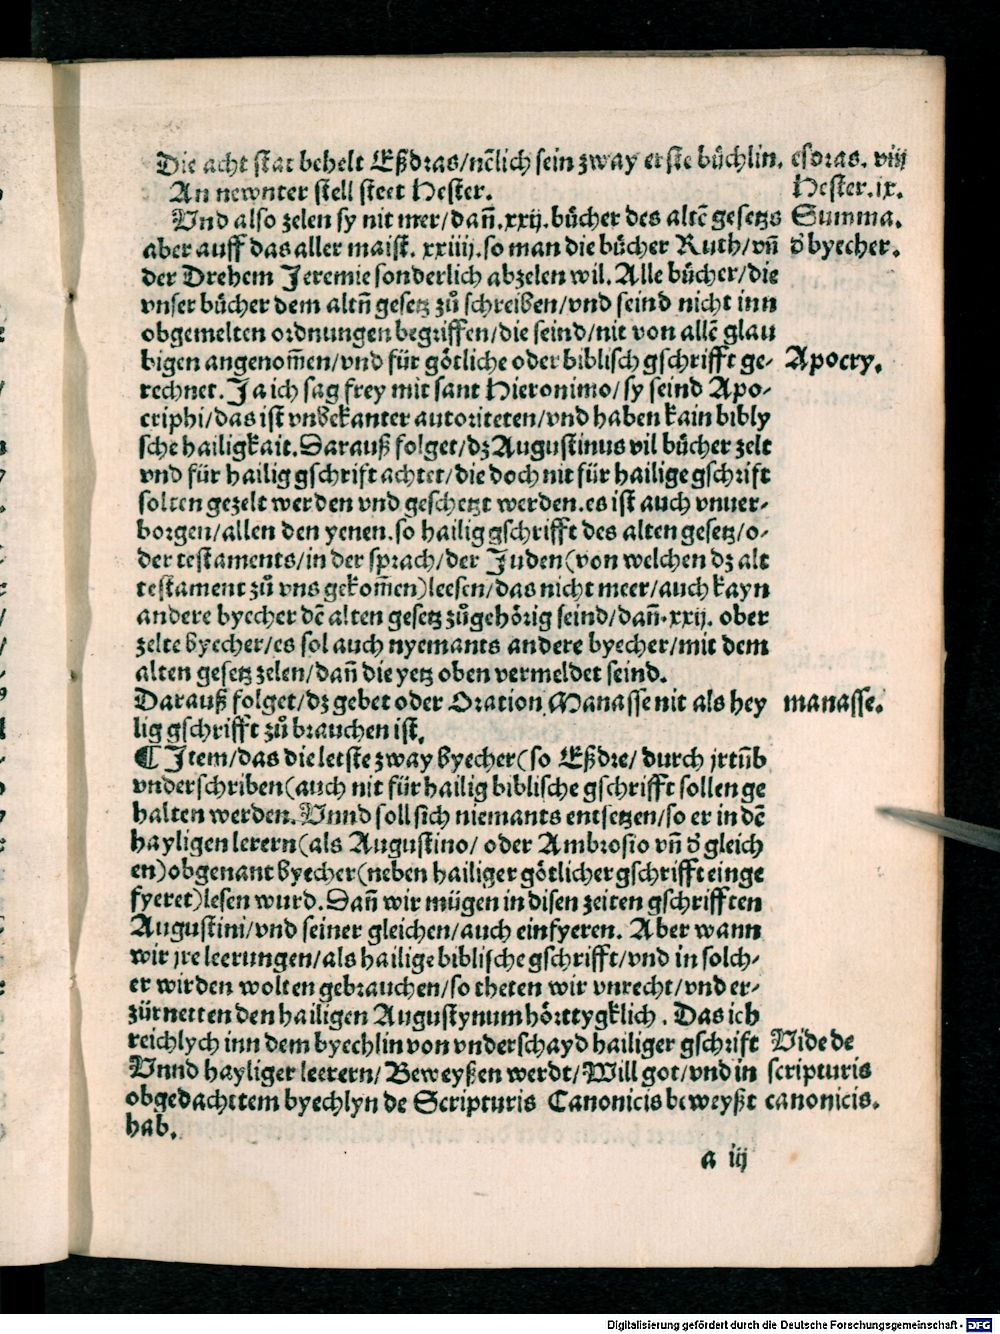 Die acht stat behelt Eßdras/nẽlich sein zway erste bůchlin. esdras. viij
An newnter stell steet Hester. Hester.ix.
Vnd also zelen sy nit mer/dañ.xxij.bůcher des altẽ gesetzs Summa.
aber auff das aller maist. xxiiij.so man die bůcher Ruth/vñ d̕ byecher.
der Drehem Jeremie sonderlich abzelen wil. Alle bůcher/die
vnser bůcher dem altñ gesetz zů schreiben/vnd seind nicht inn
obgemelten ordnungen begriffen/die seind/nit von allẽ glau
bigen angenom̃en/vnd für gôtliche oder biblisch gschrifft ge- Apocry.
rechnet. Ja ich sag frey mit sant Hieronimo/sy seind Apo-
criphi/das ist vnbekanter autoriteten/vnd haben kain bibly
sche hailigkait. Darauß folget/dz Augustinus vil bůcher zelt
vnd für hailig gschrift achtet/die doch nit für hailige gschrift
solten gezelt werden vnd geschetzt werden.es ist auch vnuer-
borgen/allen den yenen.so hailig gschrifft des alten gesetz/o-
der testaments/in der sprach/der Juden(von welchen dz alt
testament zů vns gekom̃en)leesen/das nicht meer/auch kayn
andere byecher dẽ alten gesetz zůgehôrig seind/dañ.xxij. ober
zelte byecher/es sol auch nyemants andere byecher/mit dem
alten gesetz zelen/dañ die yetz oben vermeldet seind.
Darauß folget/dz gebet oder Oration Manasse nit als hey manasse.
lig gschrifft zů brauchen ist.
¶ Item/das die letste zway byecher(so Eßdre/ durch jrtũb
vnderschriben(auch nit für hailig biblische gschrifft sollen ge
halten werden. Vnnd soll sich niemants entsetzen/so er in dẽ
hayligen lerern(als Augustino/ oder Ambrosio vñ d̕ gleich
en)obgenant byecher(neben hailiger gôtlicher gschrifft einge
fyeret)lesen wurd. Dañ wir mügen in disen zeiten gschrifften
Augustini/vnd seiner gleichen/auch einfyeren. Aber wann
wir jre leerungen/als hailige biblische gschrifft/vnd in solch-
er wirden wolten gebrauchen/so theten wir vnrecht/vnd er-
zürnetten den hailigen Augustynum hôrttygklich. Das ich
reichlych inn dem byechlin von vnderschayd hailiger gschrift Vide de
Vnnd hayliger leerern/ Beweyßen werdt/Will got/vnd in scripturis
obgedachttem byechlyn de Scripturis Canonicis beweyßt canonicis.
hab.
a iij
Digitalisierung gefördert durch die Deutsche Forschungsgemeinschaft - DFG